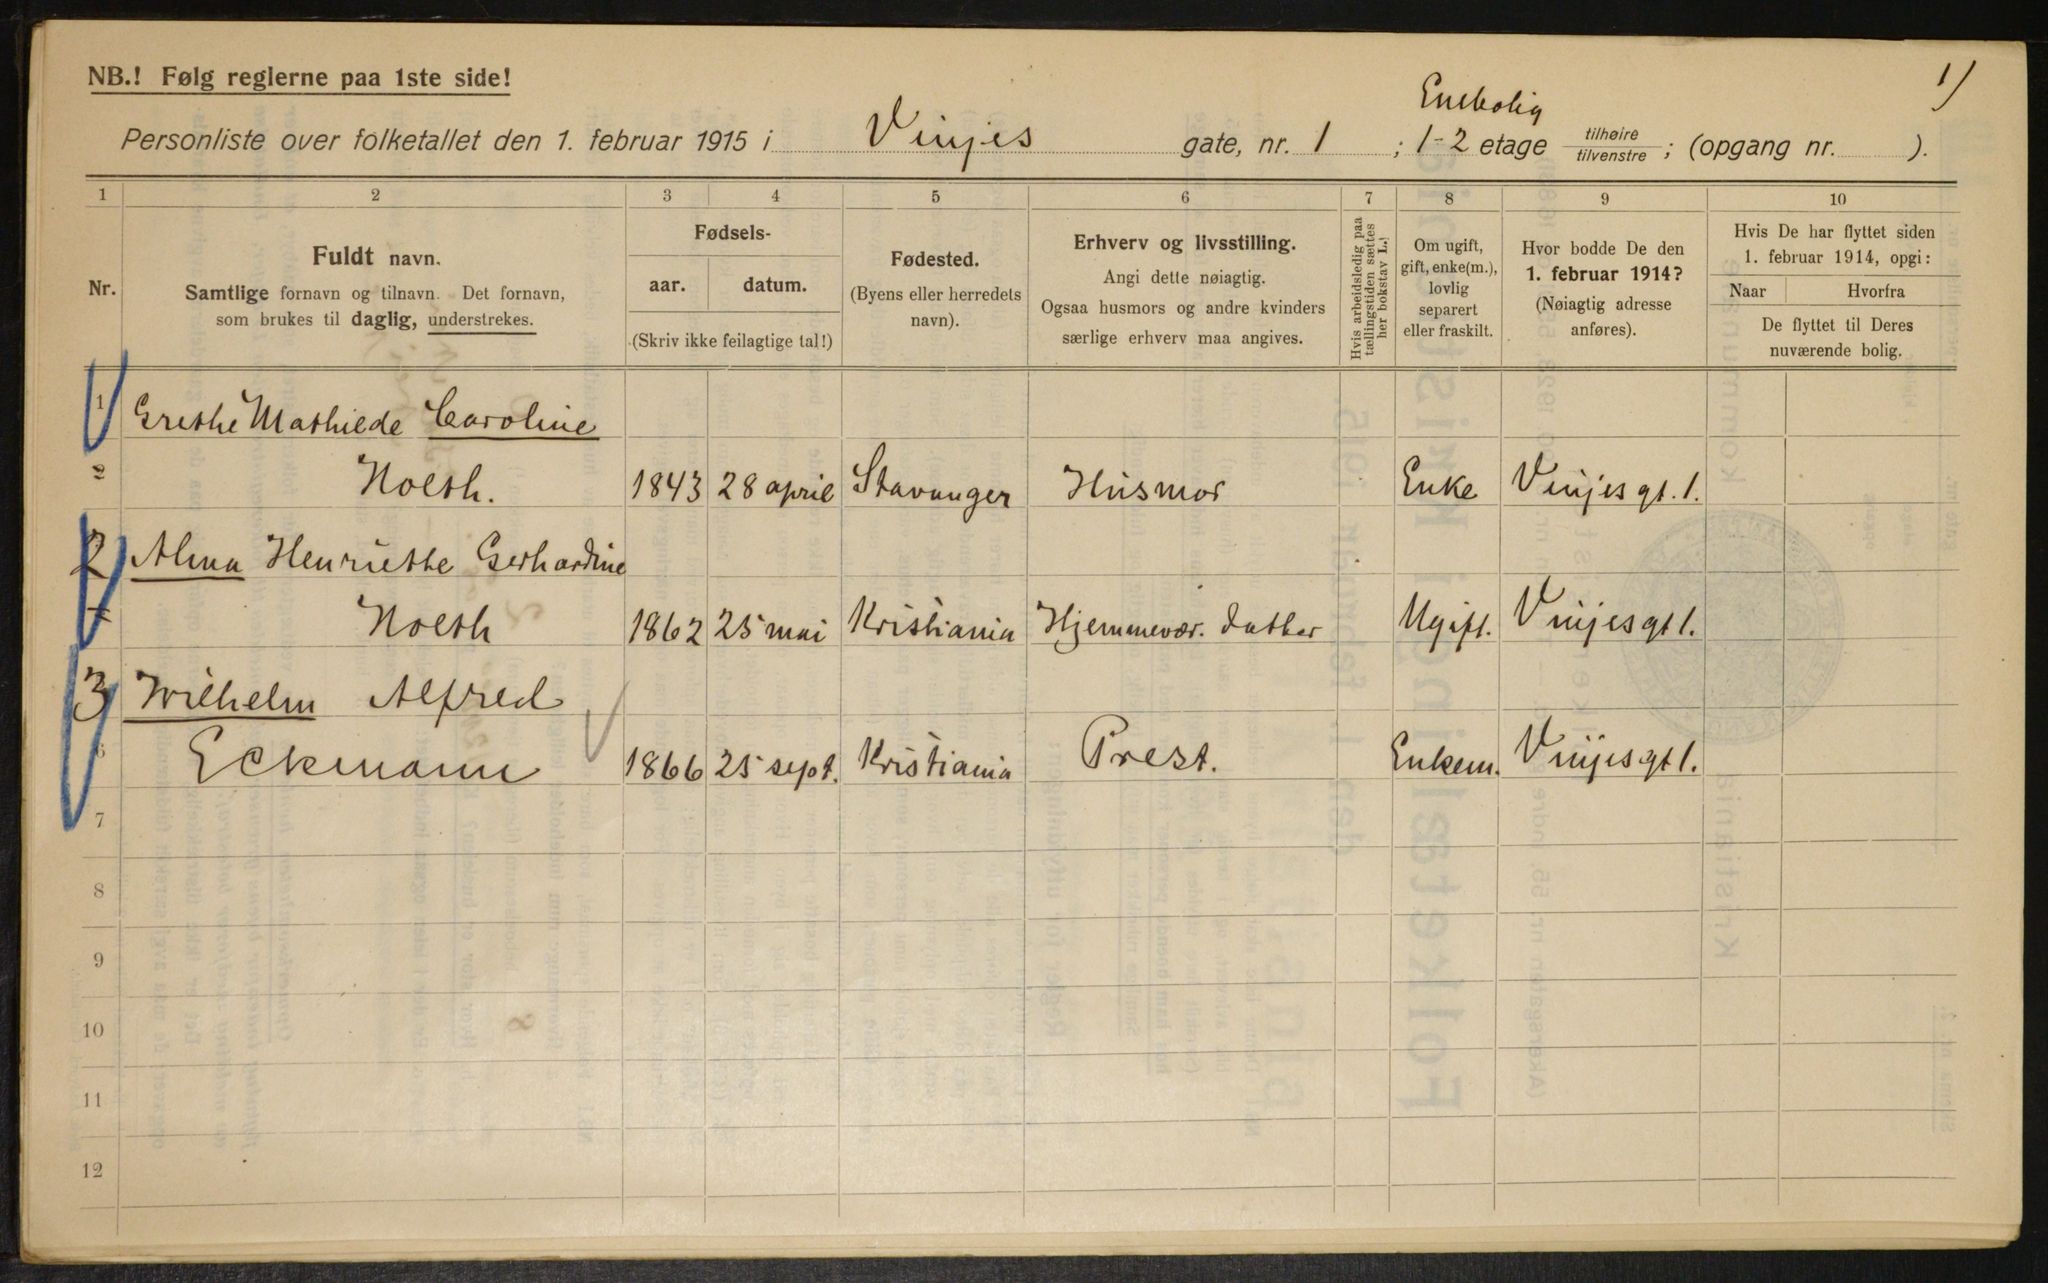 NB.! Følg reglerne paa 1ste side!
1)
Enebolig
Personliste over folketallet den 1. februar 1915 i Vinjes gate, nr. 1 ; 1-2 etage tilhøire tilvenstre ; (opgang nr. ).
1 2 3 4 5 6 7 8 9 10
Nr.
Fuldt navn.
Samtlige fornavn og tilnavn. Det fornavn,
som brukes til daglig, understrekes.
Fødsels-
aar. datum.
(Skriv ikke feilagtige tal!)
Fødested.
(Byens eller herredets
navn).
Erhverv og livsstilling.
Angi dette nøiagtig.
Ogsaa husmors og andre kvinders
særlige erhverv maa angives.
Hvis arbeidsledig paa
tællingstiden sættes
her bokstav L.!
Om ugift,
gift, enke(m.),
lovlig
separert
eller fraskilt.
Hvor bodde De den
1. februar 1914?
(Nøiagtig adresse
anføres).
Hvis De har flyttet siden
1. februar 1914, opgi:
Naar Hvorfra
De flyttet til Deres
nuværende bolig.
1 Grethe Mathilde Caroline
2 Holth. 1843 28 april Stavanger Husmor Enke Vinjesgt. 1.
2 Alma Henriette Gerhardine
Holth 1862 25 mai Kristiania Hjemmevær. datter Ugift. Vinjesgt 1.
3 Wilhelm Alfred
6 Eckmann 1866 25 sept. Kristiania Prest. Enkem. Vinjesgt 1.
7
8
9
10
11
12